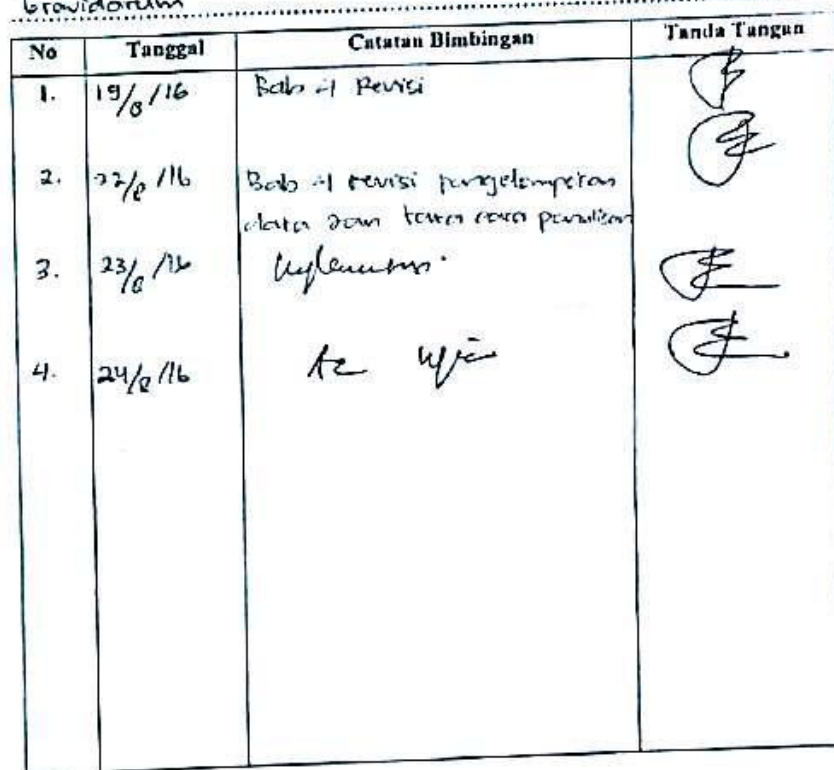 Gravidarum
No Tanggal Catatan Bimbingan Tanda Tangan
1. 19/8/16 Bab 4 Revisi
2. 22/8/16 Bab 4 revisi pengelompokan
data dan tata cara penulisan
3. 23/8/16
4. 24/8/16 Acc Ujian